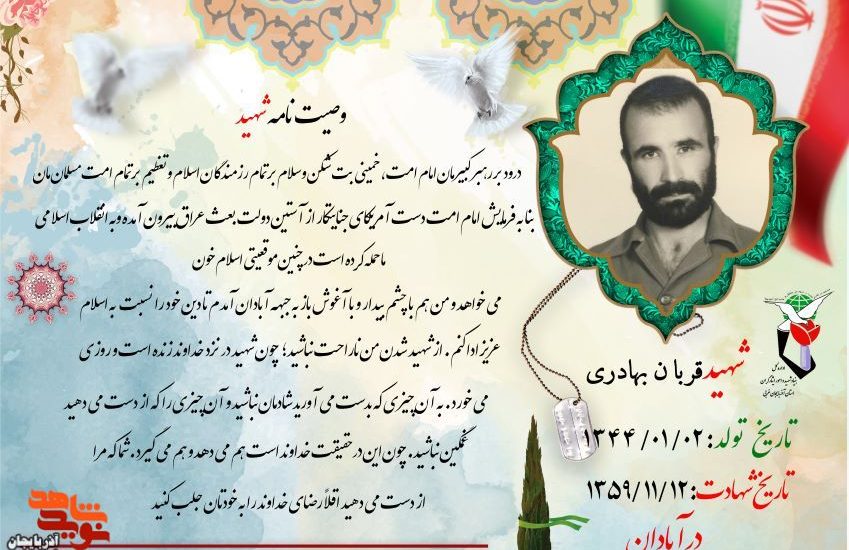 وصیت نامه شهید
درود بر رهبر کبیرمان امام امت، خمینی بت شکن وسلام بر تمام رزمندگان اسلام و تعظیم بر تمام امت مسلمان مان
بنا به فرمایش امام امت دست آمریکای جنایتکار از آستین دولت بعث عراق بیرون آمده و به انقلاب اسلامی
ما حمله کرده است در چنین موقعیتی اسلام خون
می خواهد و من هم با چشم بیدار و با آغوش باز به جبهه آبادان آمدم تا دین خود را نسبت به اسلام
عزیز ادا کنم. از شهید شدن من ناراحت نباشید؛ چون شهید در نزد خداوند زنده است و روزی
می خورد. به آن چیزی که بدست می آورید شادمان نباشید و آن چیزی را که از دست می دهید
غمگین نباشید. چون این در حقیقت خداوند است هم می دهد و هم می گیرد. شما که مرا
از دست می دهید اقلاً رضای خداوند را به خودتان جلب کنید
شهید قربان بهادری
تاریخ تولد: ۱۳۴۴/۰۱/۰۲
تاریخ شهادت: ۱۳۵۹/۱۱/۱۲
در آبادان
نوید شاهد
آذربایجان